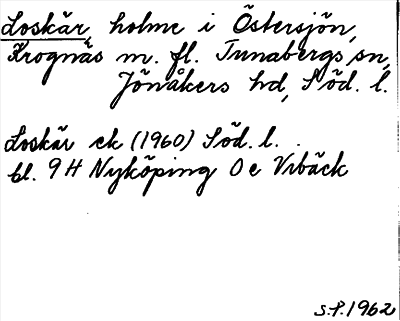 Loskär, holme i Östersjön,
Krognäs m. fl. Tunabergs sn,
Jönåkers hd, Söd. l.
Loskär ek (1960) Söd. l.
bl. 9 H Nyköping O e Vibäck
S.P. 1962